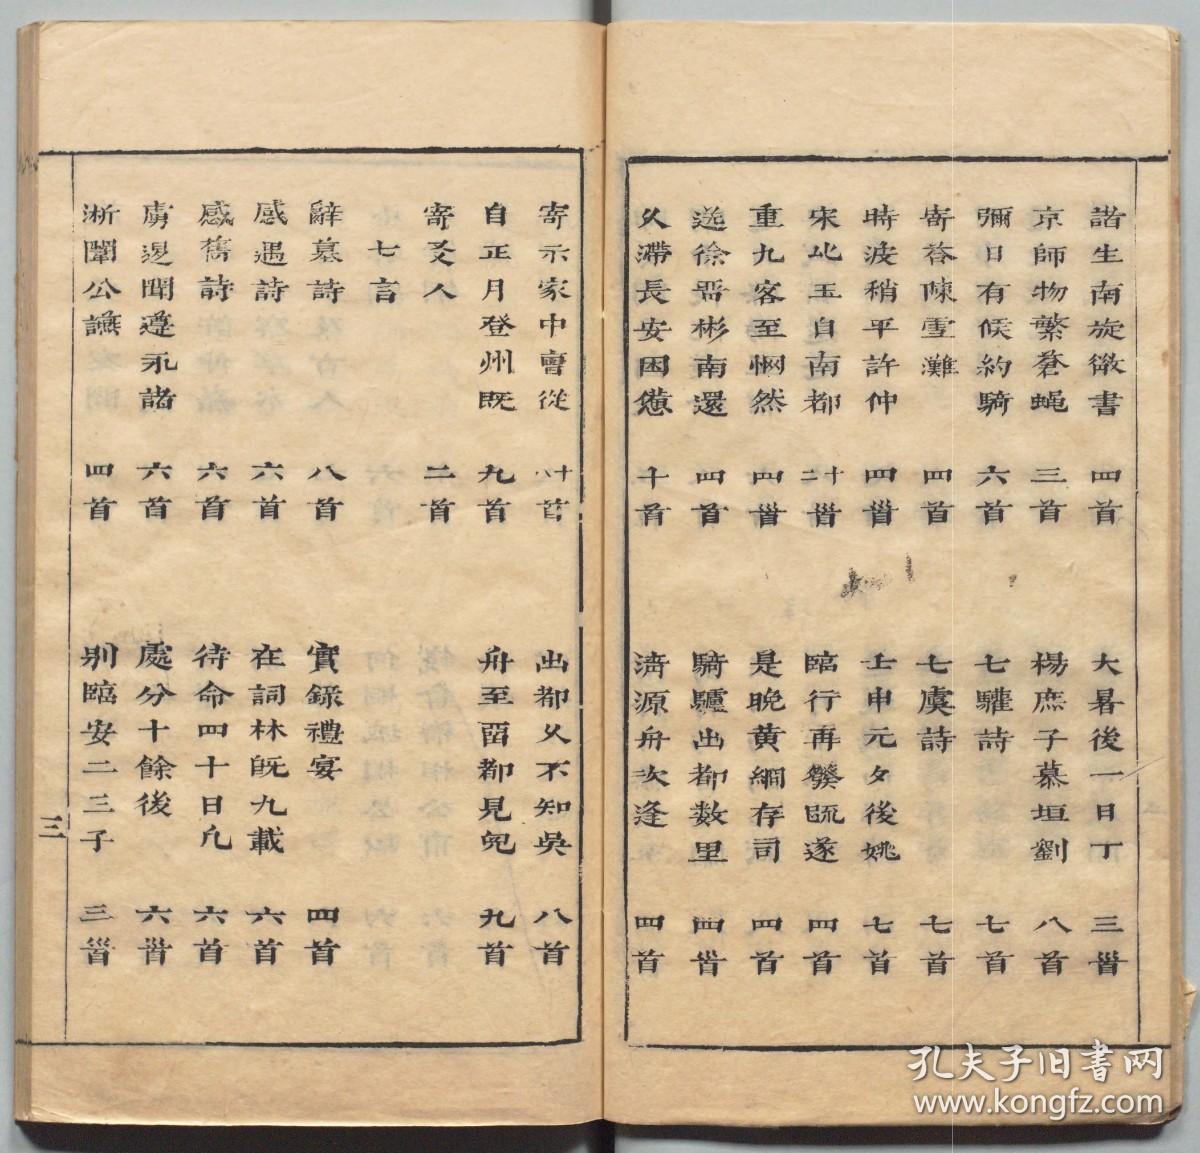 諸生南旋微書 四首 大暑後一日丁 三首
京師物繁蒼蝇 三首 楊庶子慕垣劉 八首
彌日有候約騎 六首 七驩詩 七首
寄答陳雪灘 四首 七虞詩 七首
時波稍平許仲 四首 壬申元夕後姚 七首
宋比玉自南都 二十首 臨行再發既遂 四首
重九客至惘然 四首 是晚黄綱存司 四首
送徐晋彬南還 四首 騎驢出都数里 四首
久滯長安困憊 十首 濟源舟次逢 四首
寄示家中曾從 十首 出都久不知吳 八首
自正月登州既 九首 舟至畱都見兒 九首
寄友人 二首
七言
辭墓詩 八首 實錄禮宴 四首
感遇詩 六首 在詞林既九載 六首
感舊詩 六首 待命四十日凡 六首
虜退聞遵永諸 六首 處分十餘後 六首
浙闈公讌 四首 別臨安二三子 三首
三
孔夫子旧書网
www.kongfz.com